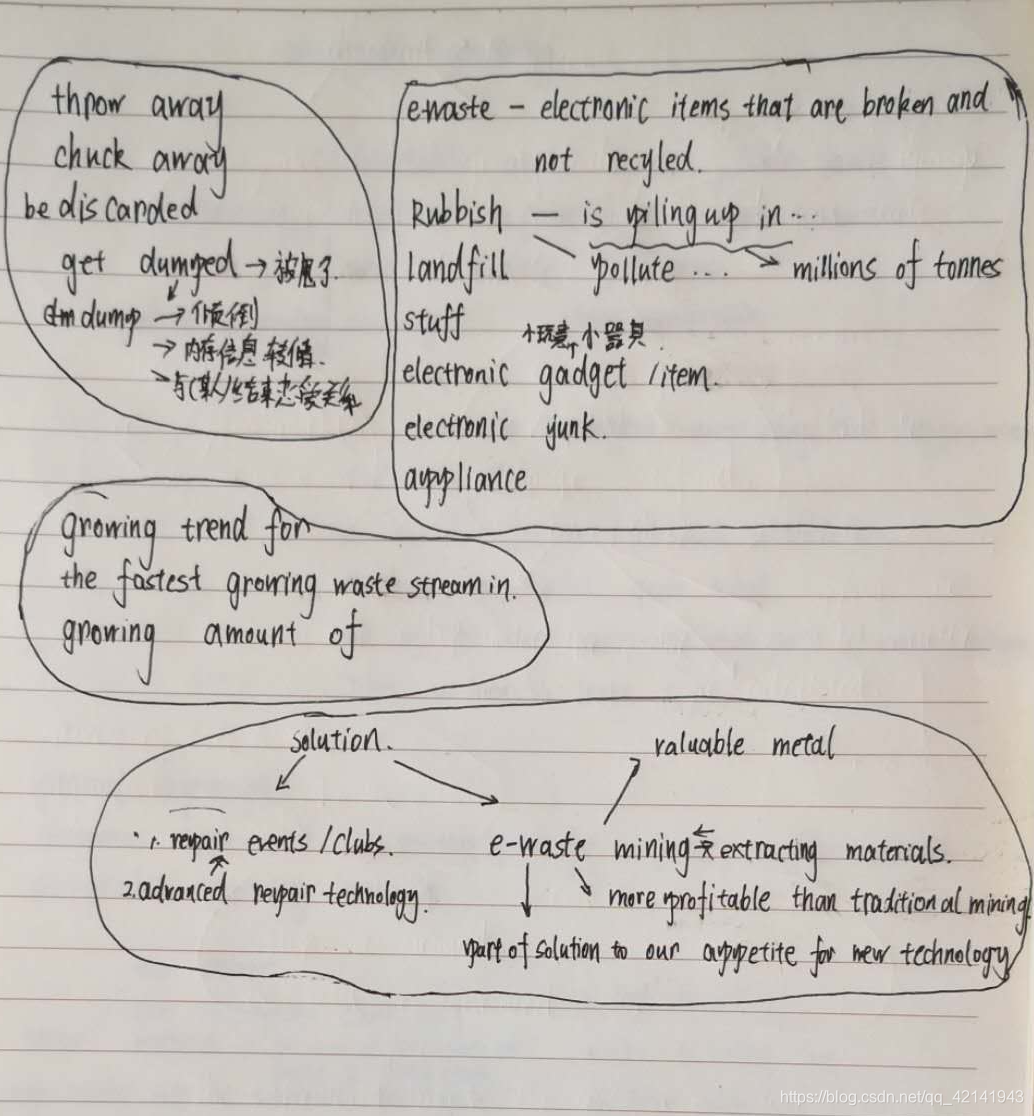 throw away
chuck away
be discarded
get dumped → 被甩了.
dump → 倾倒
→ 内存信息转储.
→ 与(某人)结束恋爱关系
e-waste – electronic items that are broken and
not recyled.
Rubbish — is piling up in ...
landfill pollute ... → millions of tonnes
stuff
小玩意 小器具.
electronic gadget / item.
electronic junk.
appliance
growing trend for
the fastest growing waste stream in.
growing amount of
solution.
valuable metal
1. repair events / clubs.
e-waste mining extracting materials.
2. advanced repair technology.
more profitable than traditional mining
part of solution to our appetite for new technology
https://blog.csdn.net/qq_42141943